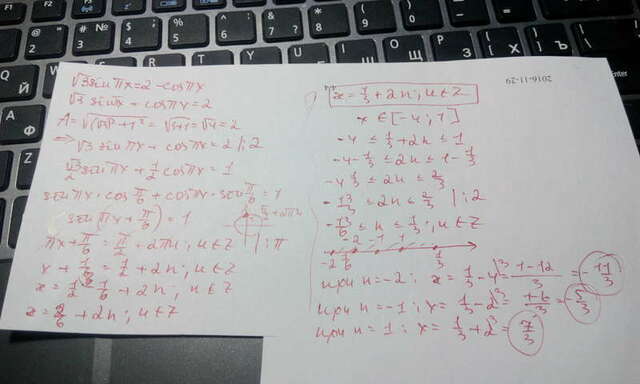 √3 sin πx = 2 - cos πx
√3 sin πx + cos πx = 2
A = √(√3)² + 1² = √3+1 = √4 = 2
=> √3 sin πx + cos πx = 2 | : 2
√3/2 sin πx + 1/2 cos πx = 1
sin πx · cos π/6 + cos πx · sin π/6 = 1
sin(πx + π/6) = 1
πx + π/6 = π/2 + 2πn; n ∈ Z | : π
x + 1/6 = 1/2 + 2n; n ∈ Z
x = 1/2 - 1/6 + 2n; n ∈ Z
x = 2/6 + 2n; n ∈ Z
2016-11-29
x = 1/3 + 2n; n ∈ Z
x ∈ [-4; 1]
-4 ≤ 1/3 + 2n ≤ 1
-4 - 1/3 ≤ 2n ≤ 1 - 1/3
-4 1/3 ≤ 2n ≤ 2/3
-13/3 ≤ 2n ≤ 2/3 | : 2
-13/6 ≤ n ≤ 1/3; n ∈ Z
-2 -1 1
-2 1/6 1/3
при n = -2: x = 1/3 - 4 = 1-12/3 = -11/3
при n = -1: x = 1/3 - 2 = 1-6/3 = -5/3
при n = 1: x = 1/3 + 2 = 7/3